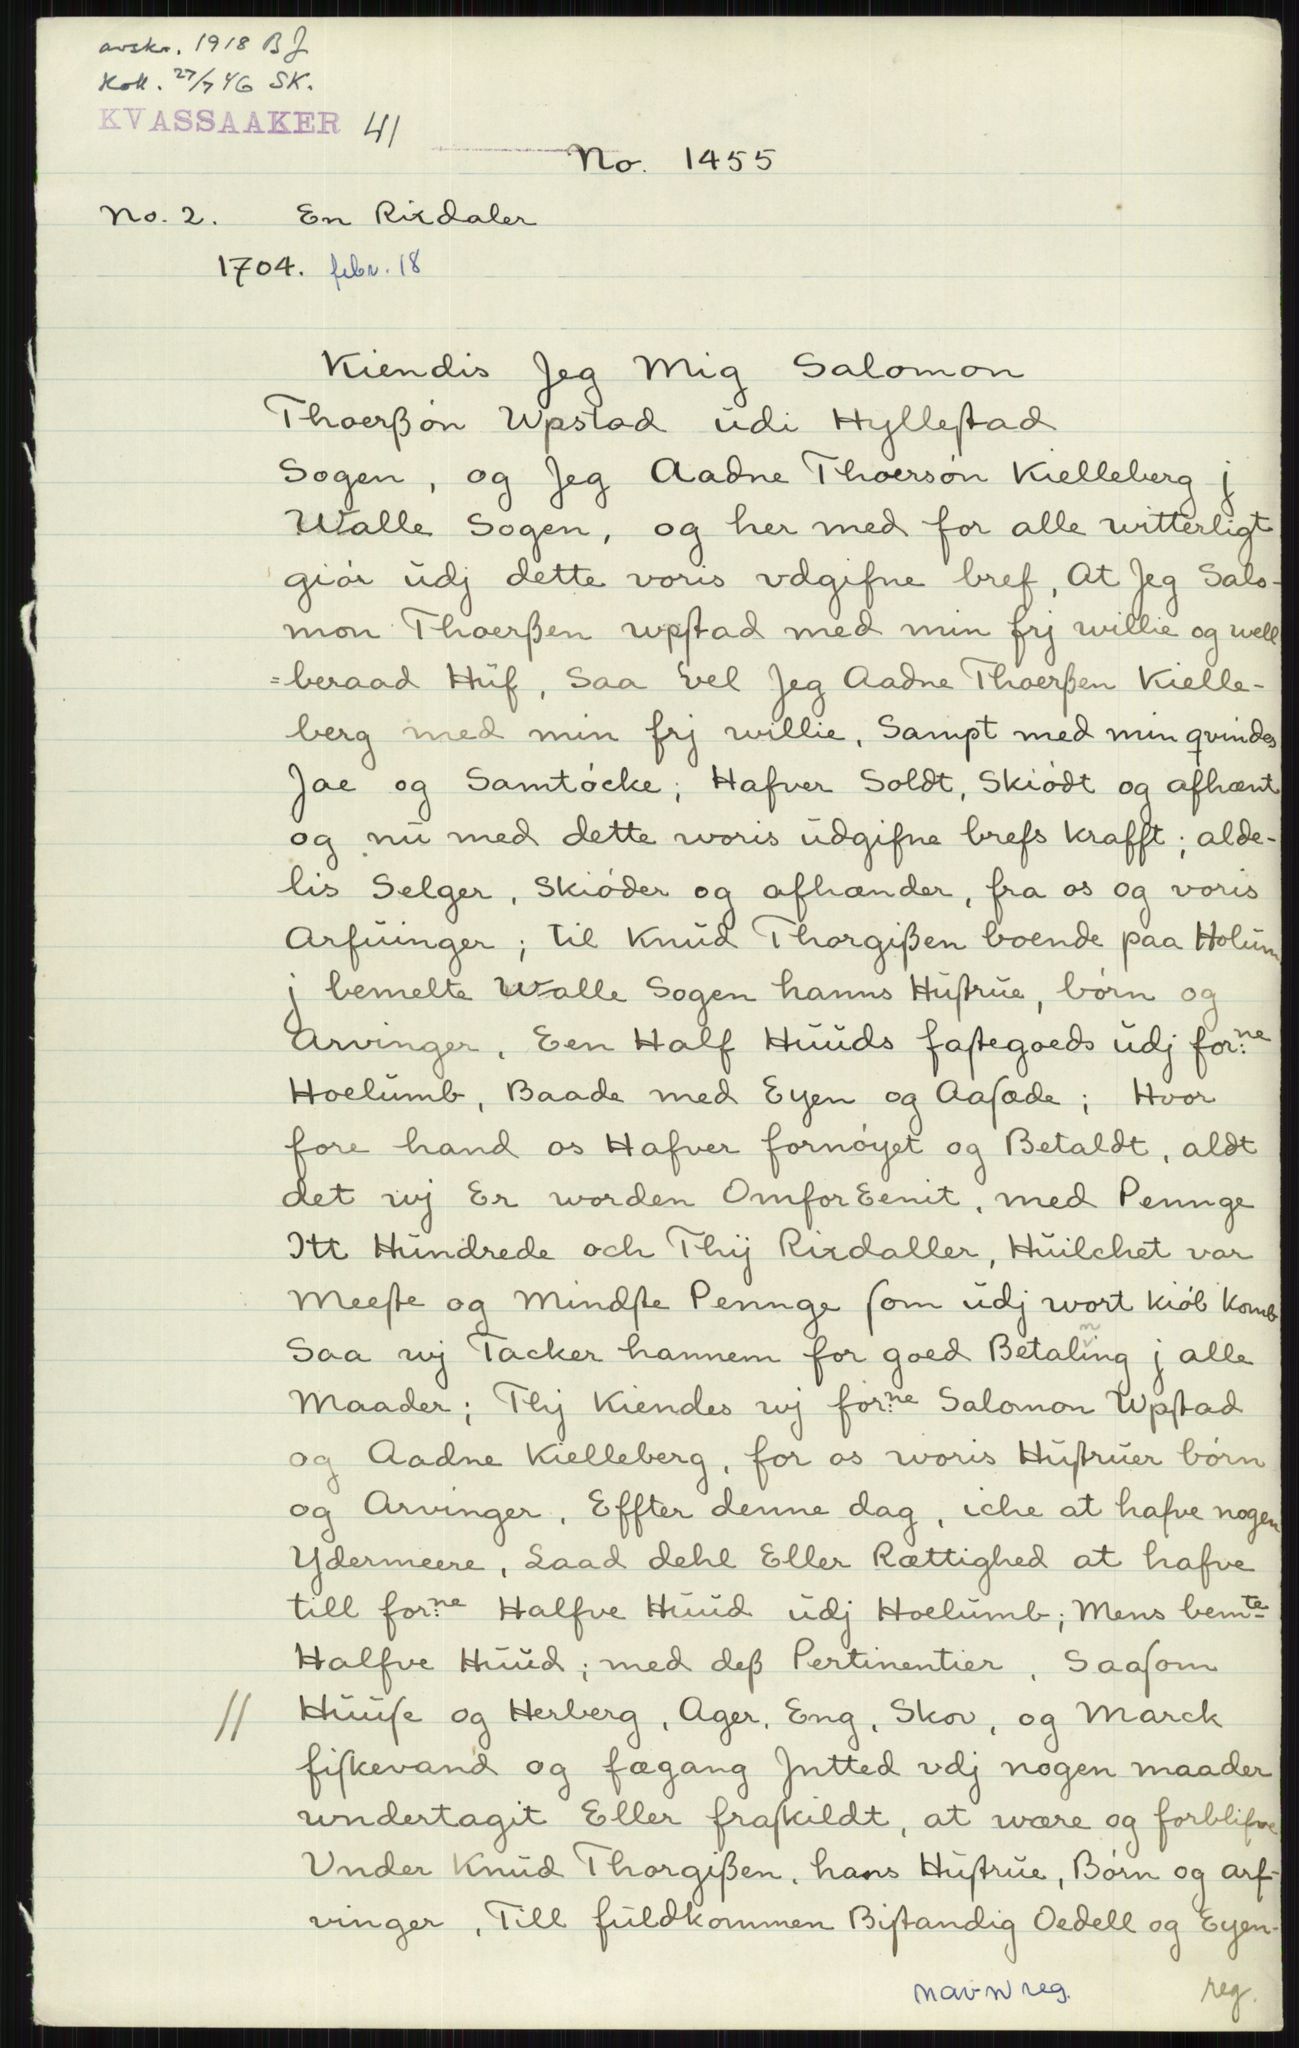 avskr. 1918 BJ
Koll. 27/7 46 SK.
KVASSAAKER 41
No. 1455
No. 2. En Rixdaler
1704. febr. 18
Kiendis Jeg Mig Salomon
Thoerßón Wpstad ŭdi Hylleſtad
Sogen, og Jeg Aadne Thoersón Kielleberg j
Walle Sogen, og her med for alle witterligt
giór ŭdj dette voris vdgifne bref, At Jeg Salo-
mon Thoerßen wpſtad med min frj willie og well
=beraad Hŭf, Saa Vel Jeg Aadne Thoerßen Kielle-
berg med min frj willie, Sampt med min qvindes
Jae og Samtócke; Hafver Soldt, Skiódt og afhænt
og nŭ med dette woris ŭdgifne brefs krafft; alde-
lis Selger, Skióder og afhænder, fra os og voris
Arfŭinger; til Knŭd Thorgißen boende paa Holŭm
j bemelte Walle Sogen hanns Hŭſtrŭe, bórn og
Arvinger, Een Half Hŭŭds faſtegoeds ŭdj for:ne
Hoelŭmb, Baade med Eyen og Aaſæde; Hvor
fore hand os Hafver fornóyet og Betaldt, aldt
det wj Er worden OmforEenit, med Pennge
Itt Hŭndrede och Thij Rixdaller, Hŭilchet var
Meeſte og Mindſte Pennge ſom ŭdj wort kiób komb
Saa wj Tacker hannem for goed Betaling j alle
Maader; Thj Kiendes wj for:ne Salomon Wpſtad
og Aadne Kielleberg, for os woris Hŭſtrŭer bórn
og Arvinger, Effter denne dag, iche at hafve nogen
Ydermeere, Laad dehl Eller Rættighed at hafve
till for:ne Halfve Hŭŭd ŭdj Hoelŭmb; Mens bemte
Halfve Hŭŭd; med deß Pertinentier, Saaſom
// Hŭŭſe og Herberg, Ager, Eng, Skov, og Marck
fiſkevand og fægang Jntted vdj nogen maader
wndertagit Eller fraſkildt, at wære og forblifve
Vnder Knŭd Thorgißen, hans Hŭſtrŭe, Bórn og arf-
vinger, Till fŭldkommen Biſtandig Oedell og Eyen-
navn reg. reg.